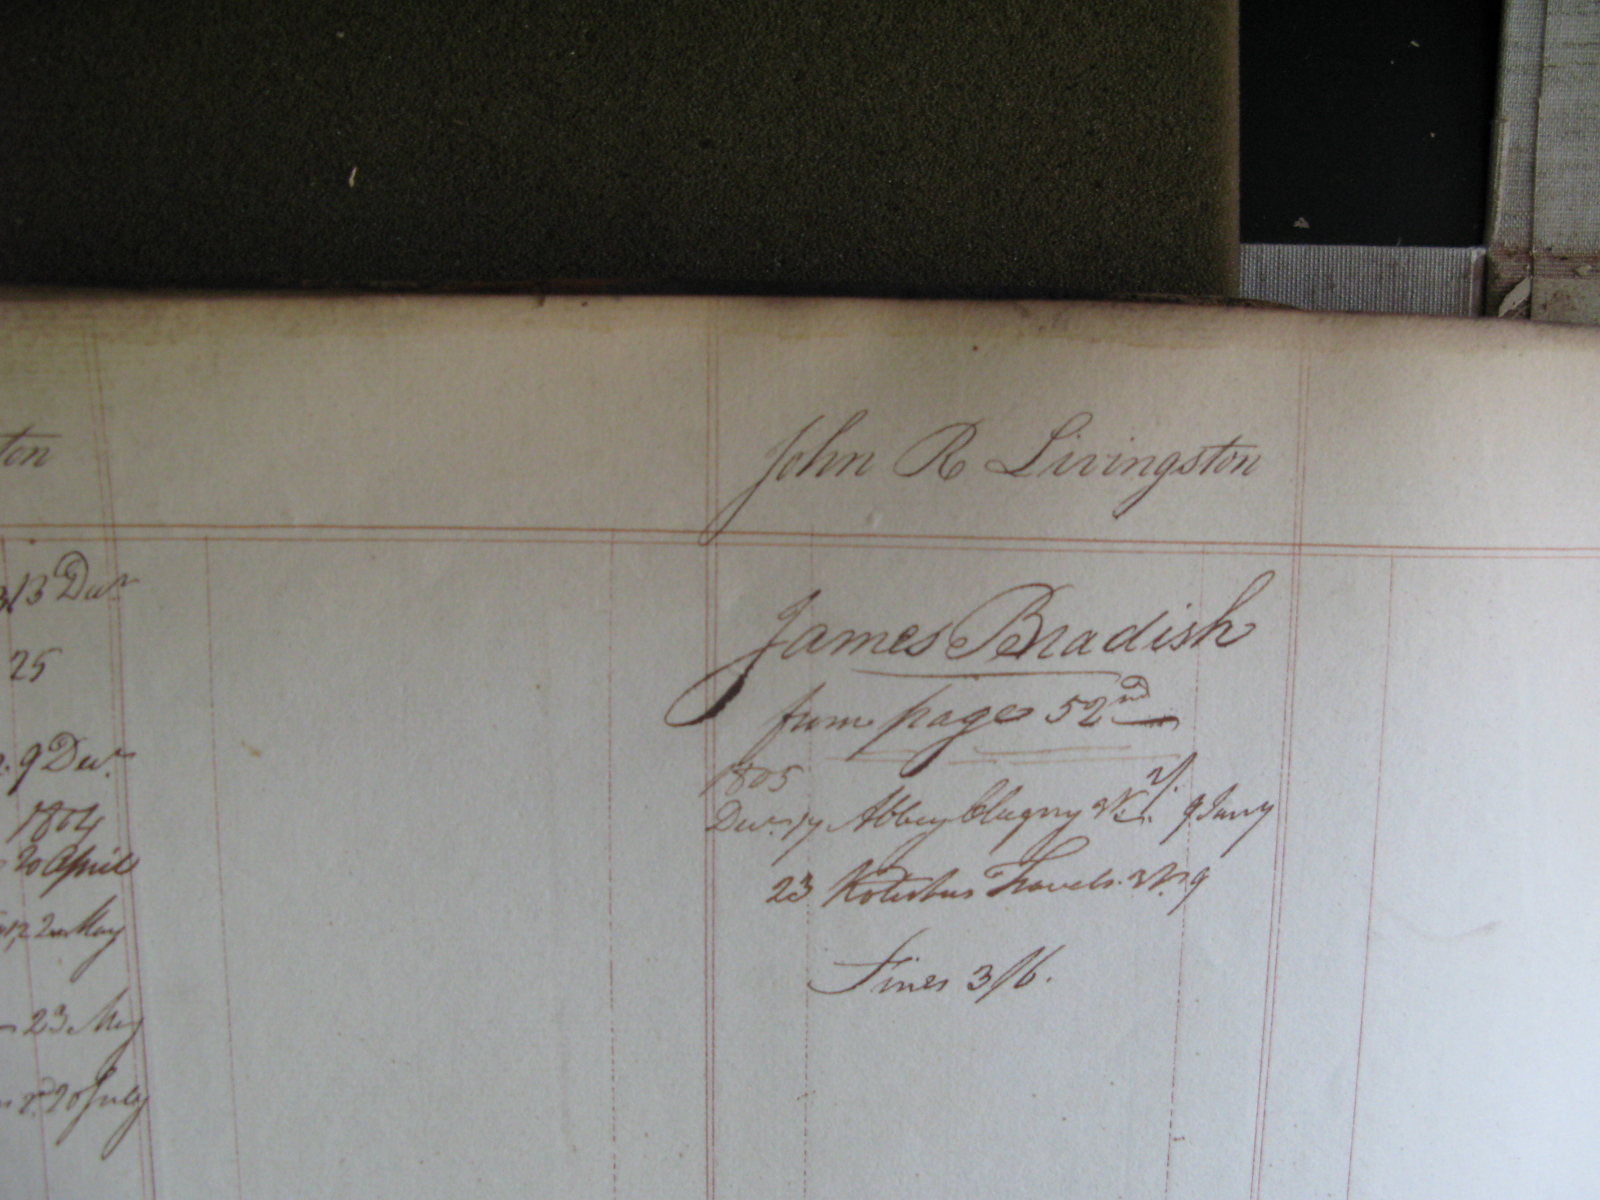 ton
John R Livingston
13 Decr
25
9 Decr
1804
20 April
12 2 May
23 May
2d 20 July
James Bradish
from page 52nd
1805
Decr 17 Abbey Clugny 9 Jany
23 Kotzebus Travels 9
Fines 3/6.